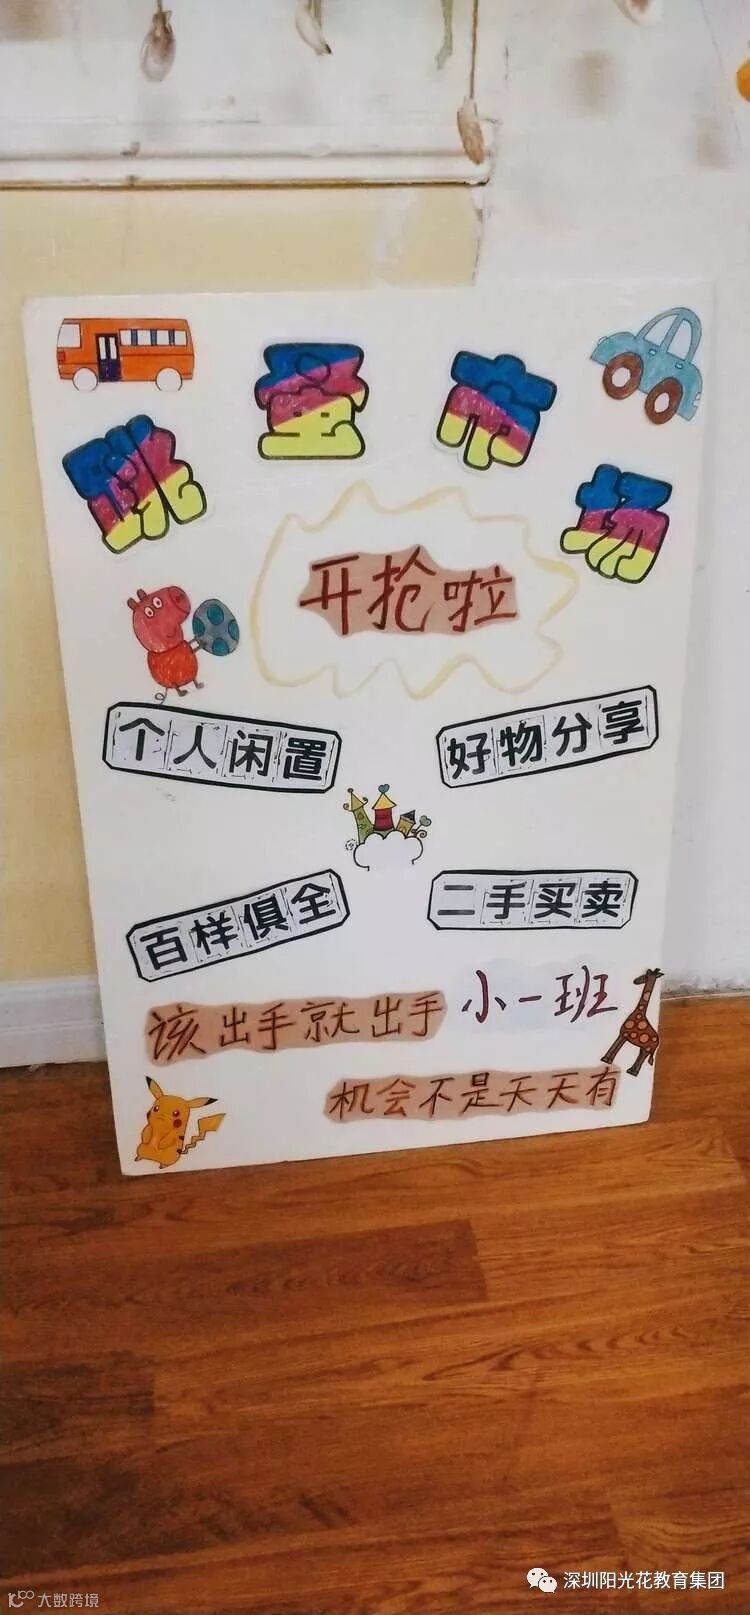 跳蚤市场
开抢啦
个人闲置
好物分享
百样俱全
二手买卖
小一班
该出手就出手
机会不是天天有
深圳阳光花教育集团
大数跨境